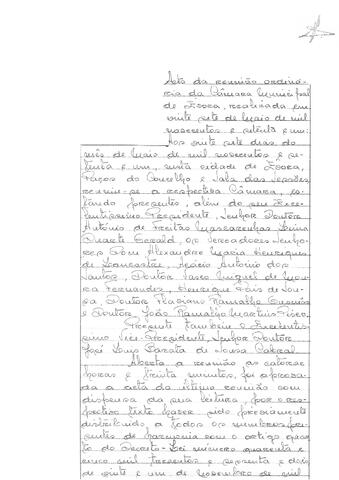 Acta da reunião ordiná-
ria da Câmara Municipal
de Évora, realizada em
vinte sete de Maio de mil
novecentos e setenta e um:
Aos vinte sete dias do
mês de Maio de mil novecentos e se-
tenta e um, nesta cidade de Évora,
Paços do Concelho e Sala das Sessões
reuniu-se a respectiva Câmara, es-
tando presentes, além do seu Exce-
lentíssimo Presidente, Senhor Doutor
António de Freitas Mascarenhas
Duarte, os Vereadores Senho-
res Dom Alexandre Maria Henriques
de Lancastre, António dos
Santos, Doutor Vasco Miguel de Mou-
ra Fernandes, Henrique de Sou-
sa, Doutor Ramalho
e Doutor João Ramalho
Presente também o Excelentís-
simo Vice-Presidente, Senhor Doutor
José Luís de Sousa Cabral.
Aberta a reunião às catorze
horas e trinta minutos, foi aprova-
da a acta da última reunião com
dispensa da sua leitura, por o res-
pectivo texto haver sido previamente
distribuído a todos os membros pre-
sentes de harmonia com o artigo quar-
to do Decreto-Lei número quarenta e
cinco mil trezentos e sessenta e dois
de vinte e um de Novembro de mil